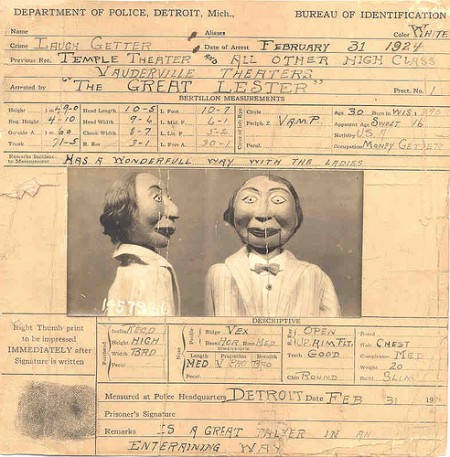 DEPARTMENT OF POLICE, DETROIT, Mich., BUREAU OF IDENTIFICATION
Name Aliases Color WHITE
Crime LAUGH GETTER Date of Arrest FEBRUARY 31 1924
Previous Rec. TEMPLE THEATER AND ALL OTHER HIGH CLASS
VAUDERVILLE THEATERS
Arrested by "THE GREAT LESTER" Prect. No. 1
BERTILLON MEASUREMENTS
Height Head Length 10-5 L. Foot 10-7 Circle Age 30 Born in WIS
Hgt. 4-10 Head Width 9-6 L. Mid. F. 6-1 Periph. Z VAMP. Apparent Age SWEET 16
Outside A. Cheek Width 8-7 L. Lit. F. 5-2 Nativity U.S.A
Trunk 71-5 R. Ear 3-1 L. Fore A. 30-1 Pecul. Occupation MONEY GETTER
Remarks Incident to Measurement HAS A WONDERFULL WAY WITH THE LADIES
DESCRIPTIVE
Right Thumb print
to be impressed
IMMEDIATELY after
Signature is written
Inclin. RECD Ridge VEX OPEN Beard
Height HIGH Base HOR Root MED Hair CHEST
Width BRD Length Projection Breadth Teeth GOOD Complexion MED
Pecul. MED V PRO BRD Weight 20
Pecul. Chin ROUND Build SLIM
Measured at Police Headquarters, DETROIT Date FEB 31 19
Prisoner's Signature
Remarks IS A GREAT TALKER IN AN
ENTERAINING WAY